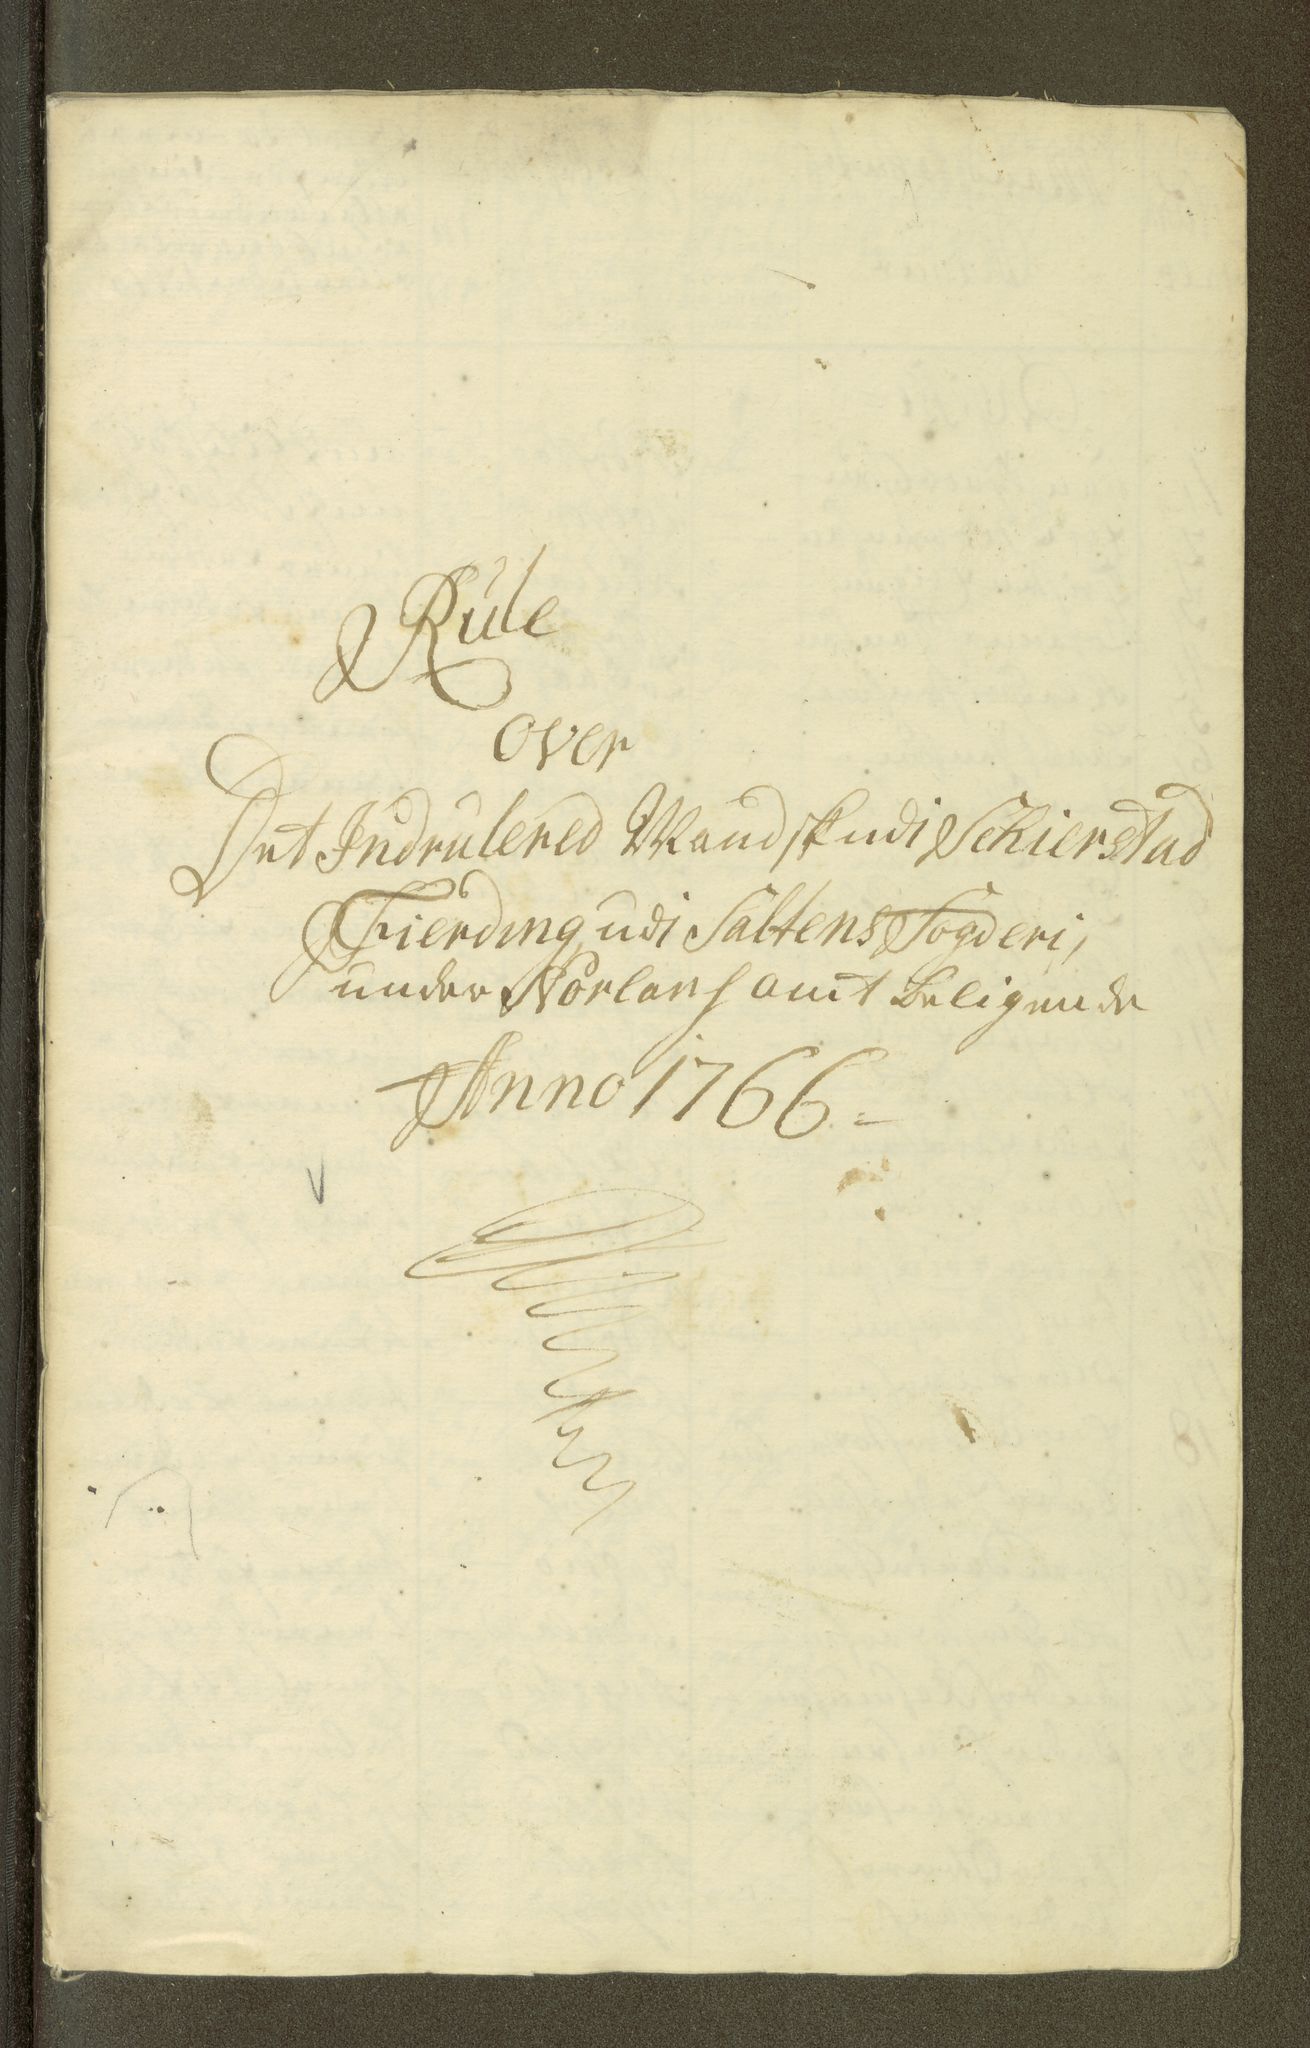 Rule
over
Det Indrulered Mandsk udi Schierstad
Fierding, udi Saltens Fogderi,
under Norlans amt beligende
Anno 1766 =